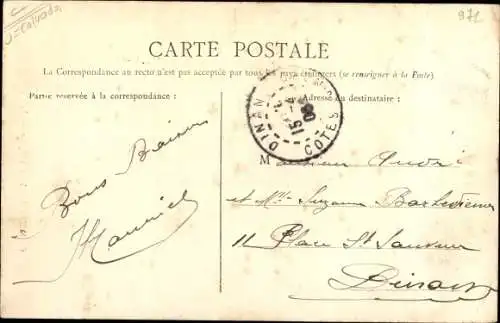 CARTE POSTALE
La Correspondance au recto n'est pas acceptée par tous les pays étrangers (se renseigner à la Poste)
Partie réservée à la correspondance :
Adresse du destinataire :
DINAN
15
08
COTES
Bons Baisers
Maurice
Monsieur André
et Mlle Suzanne
11 Place St Sauveur
Dinan